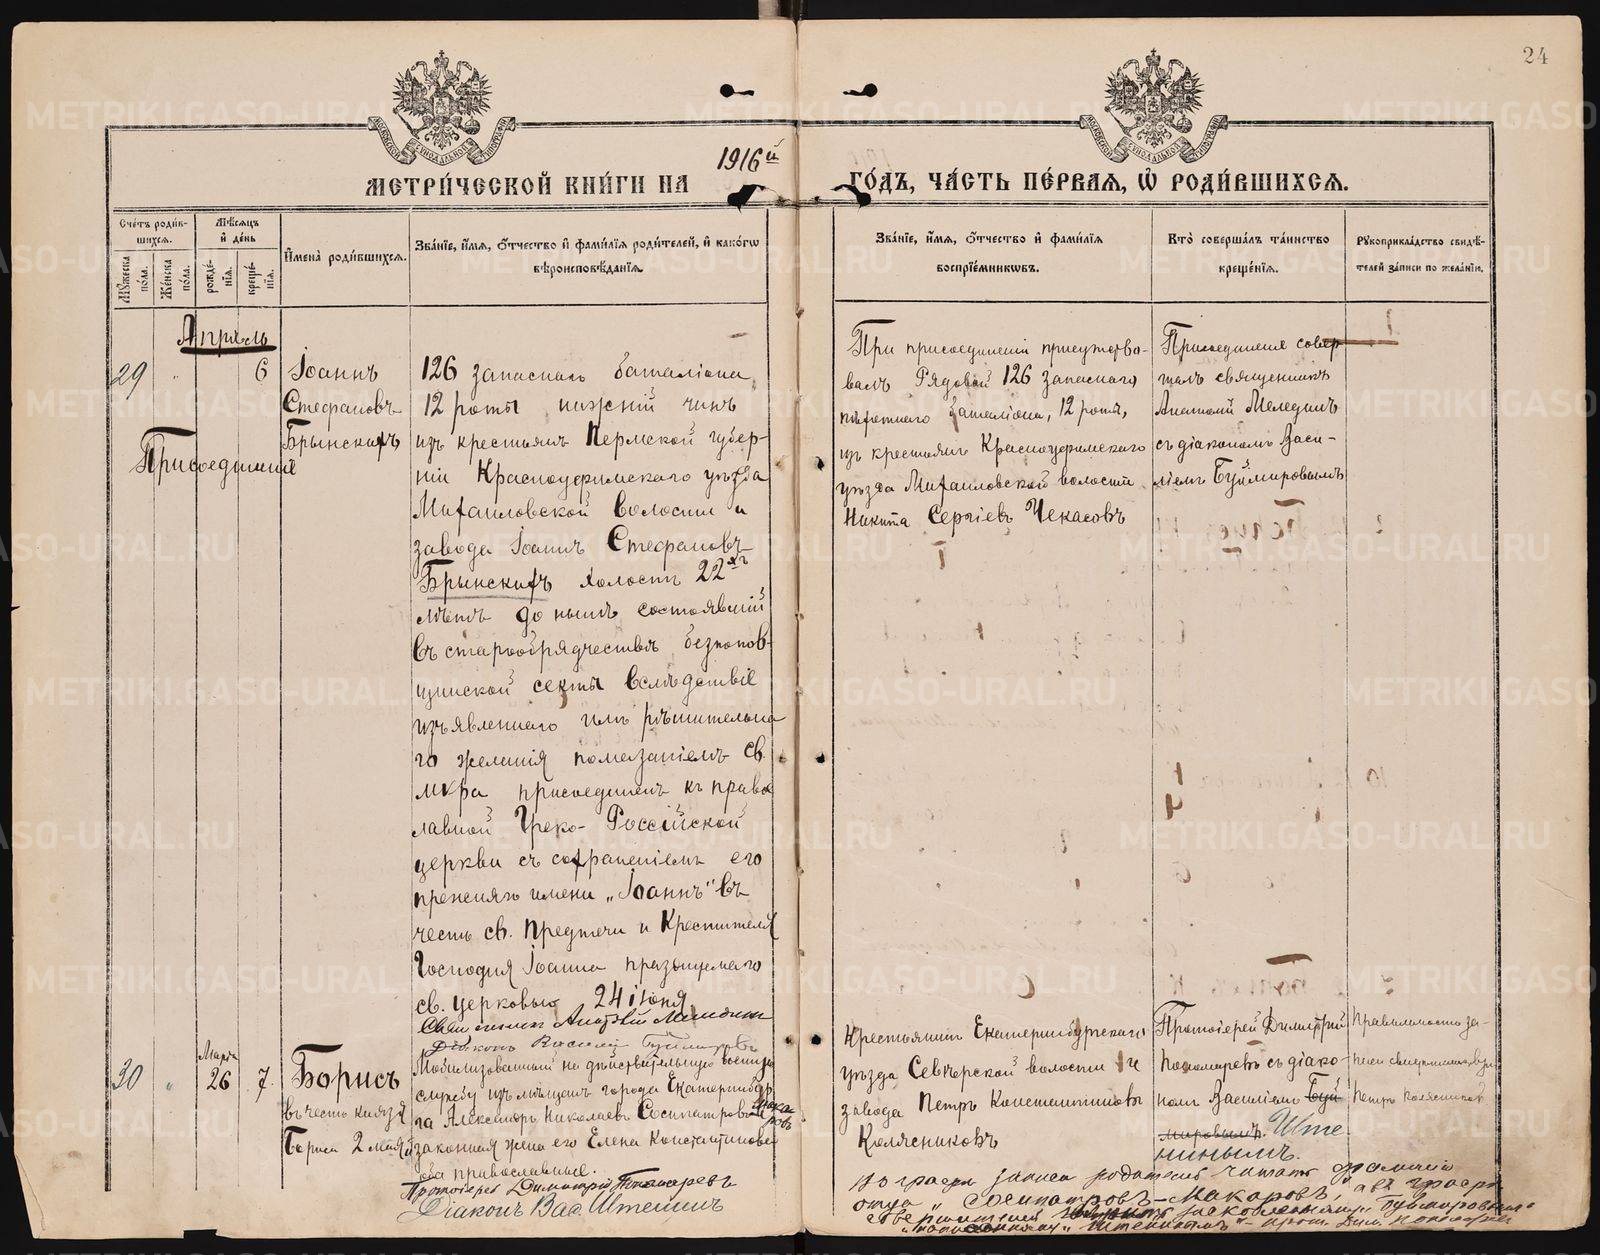 24
1916й
МЕТРИ́ЧЕСКОЙ КНИ́ГИ НА
ГО́ДЪ, ЧА́СТЬ ПЕ́РВАЯ, Ѡ РОДИ́ВШИХСЯ.
Сче́тъ роди́в-
шихся.
Му́жеска по́ла.
Же́нска по́ла.
Мѣ́сяцъ
и́ де́нь
рожде́нія.
креще́нія.
И҆мена̀ роди́вшихся.
Зва́ніе, и́мя, о́тчество и́ фами́лія роди́телей, и́ како́гѡ
вѣроисповѣ́данія.
Зва́ніе, и́мя, о́тчество и́ фами́лія
воспріе́мникѡвъ.
Кто̀ соверша́лъ та́инство
креще́нія.
Рукоприкла́дство свидѣ́-
телей за́писи по жела́нію.
Апрѣль
29
"
6
Іоаннъ
Стефановъ
Брынскихъ
Присоединеніе
126 запаснаго баталіона
12 роты нижній чинъ
изъ крестьянъ Пермской губер-
ніи Красноуфимскаго уѣзда
Михайловской волости и
завода Іоаннъ Стефановъ
Брынскихъ холостъ 22хъ
лѣтъ до нынѣ состоявшій
въ старообрядчествѣ безпопов-
щинской секты вслѣдствіе
изъявленнаго имъ рѣшительна
го желанія помазаніемъ св.
мѵра присоединенъ къ право
славной Греко-Россійской
церкви съ сохраненіемъ его
прежняго имени „Іоаннъ" въ
честь св. Предтечи и Крестителя
Господня Іоанна празднуемаго
св. церковью 24 іюня
Священникъ Анатолій Мелединъ
Діаконъ Василій Буймировъ
При присоединеніи присутство-
валъ Рядовой 126 запаснаго
пѣхотнаго баталіона, 12 роты,
изъ крестьянъ Красноуфимскаго
уѣзда Михайловской волости
Никита Сергіевъ Чекасовъ
Присоединеніе совер
шалъ священникъ
Анатолій Мелединъ
съ діакономъ Васи-
ліемъ Буймировымъ
30
"
Марта
26
7.
Борисъ
въ честь князя
Бориса 2 мая
Мобилизованный на дѣйствительную военную
службу изъ мѣщанъ города Екатеринбур
га Александръ Николаевъ Сосипатровъ Макаровъ
законная жена его Елена Константинова
оба православные.
Протоіерей Димитрій Пономаревъ
Діаконъ Вас. Штенинъ
Крестьянинъ Екатеринбургскаго
уѣзда Сѣверской волости и
завода Петръ Константиновъ
Колясниковъ
Протоіерей Димитрій
Пономаревъ съ діако-
номъ Василіемъ Буй
мировымъ. Ште
нинымъ.
Правильность за-
писи свидѣтельствую
Петръ Колясниковъ
въ графѣ записи родителей читать фамилію
отца „Сосипатровъ-Макаровъ", а въ графѣ